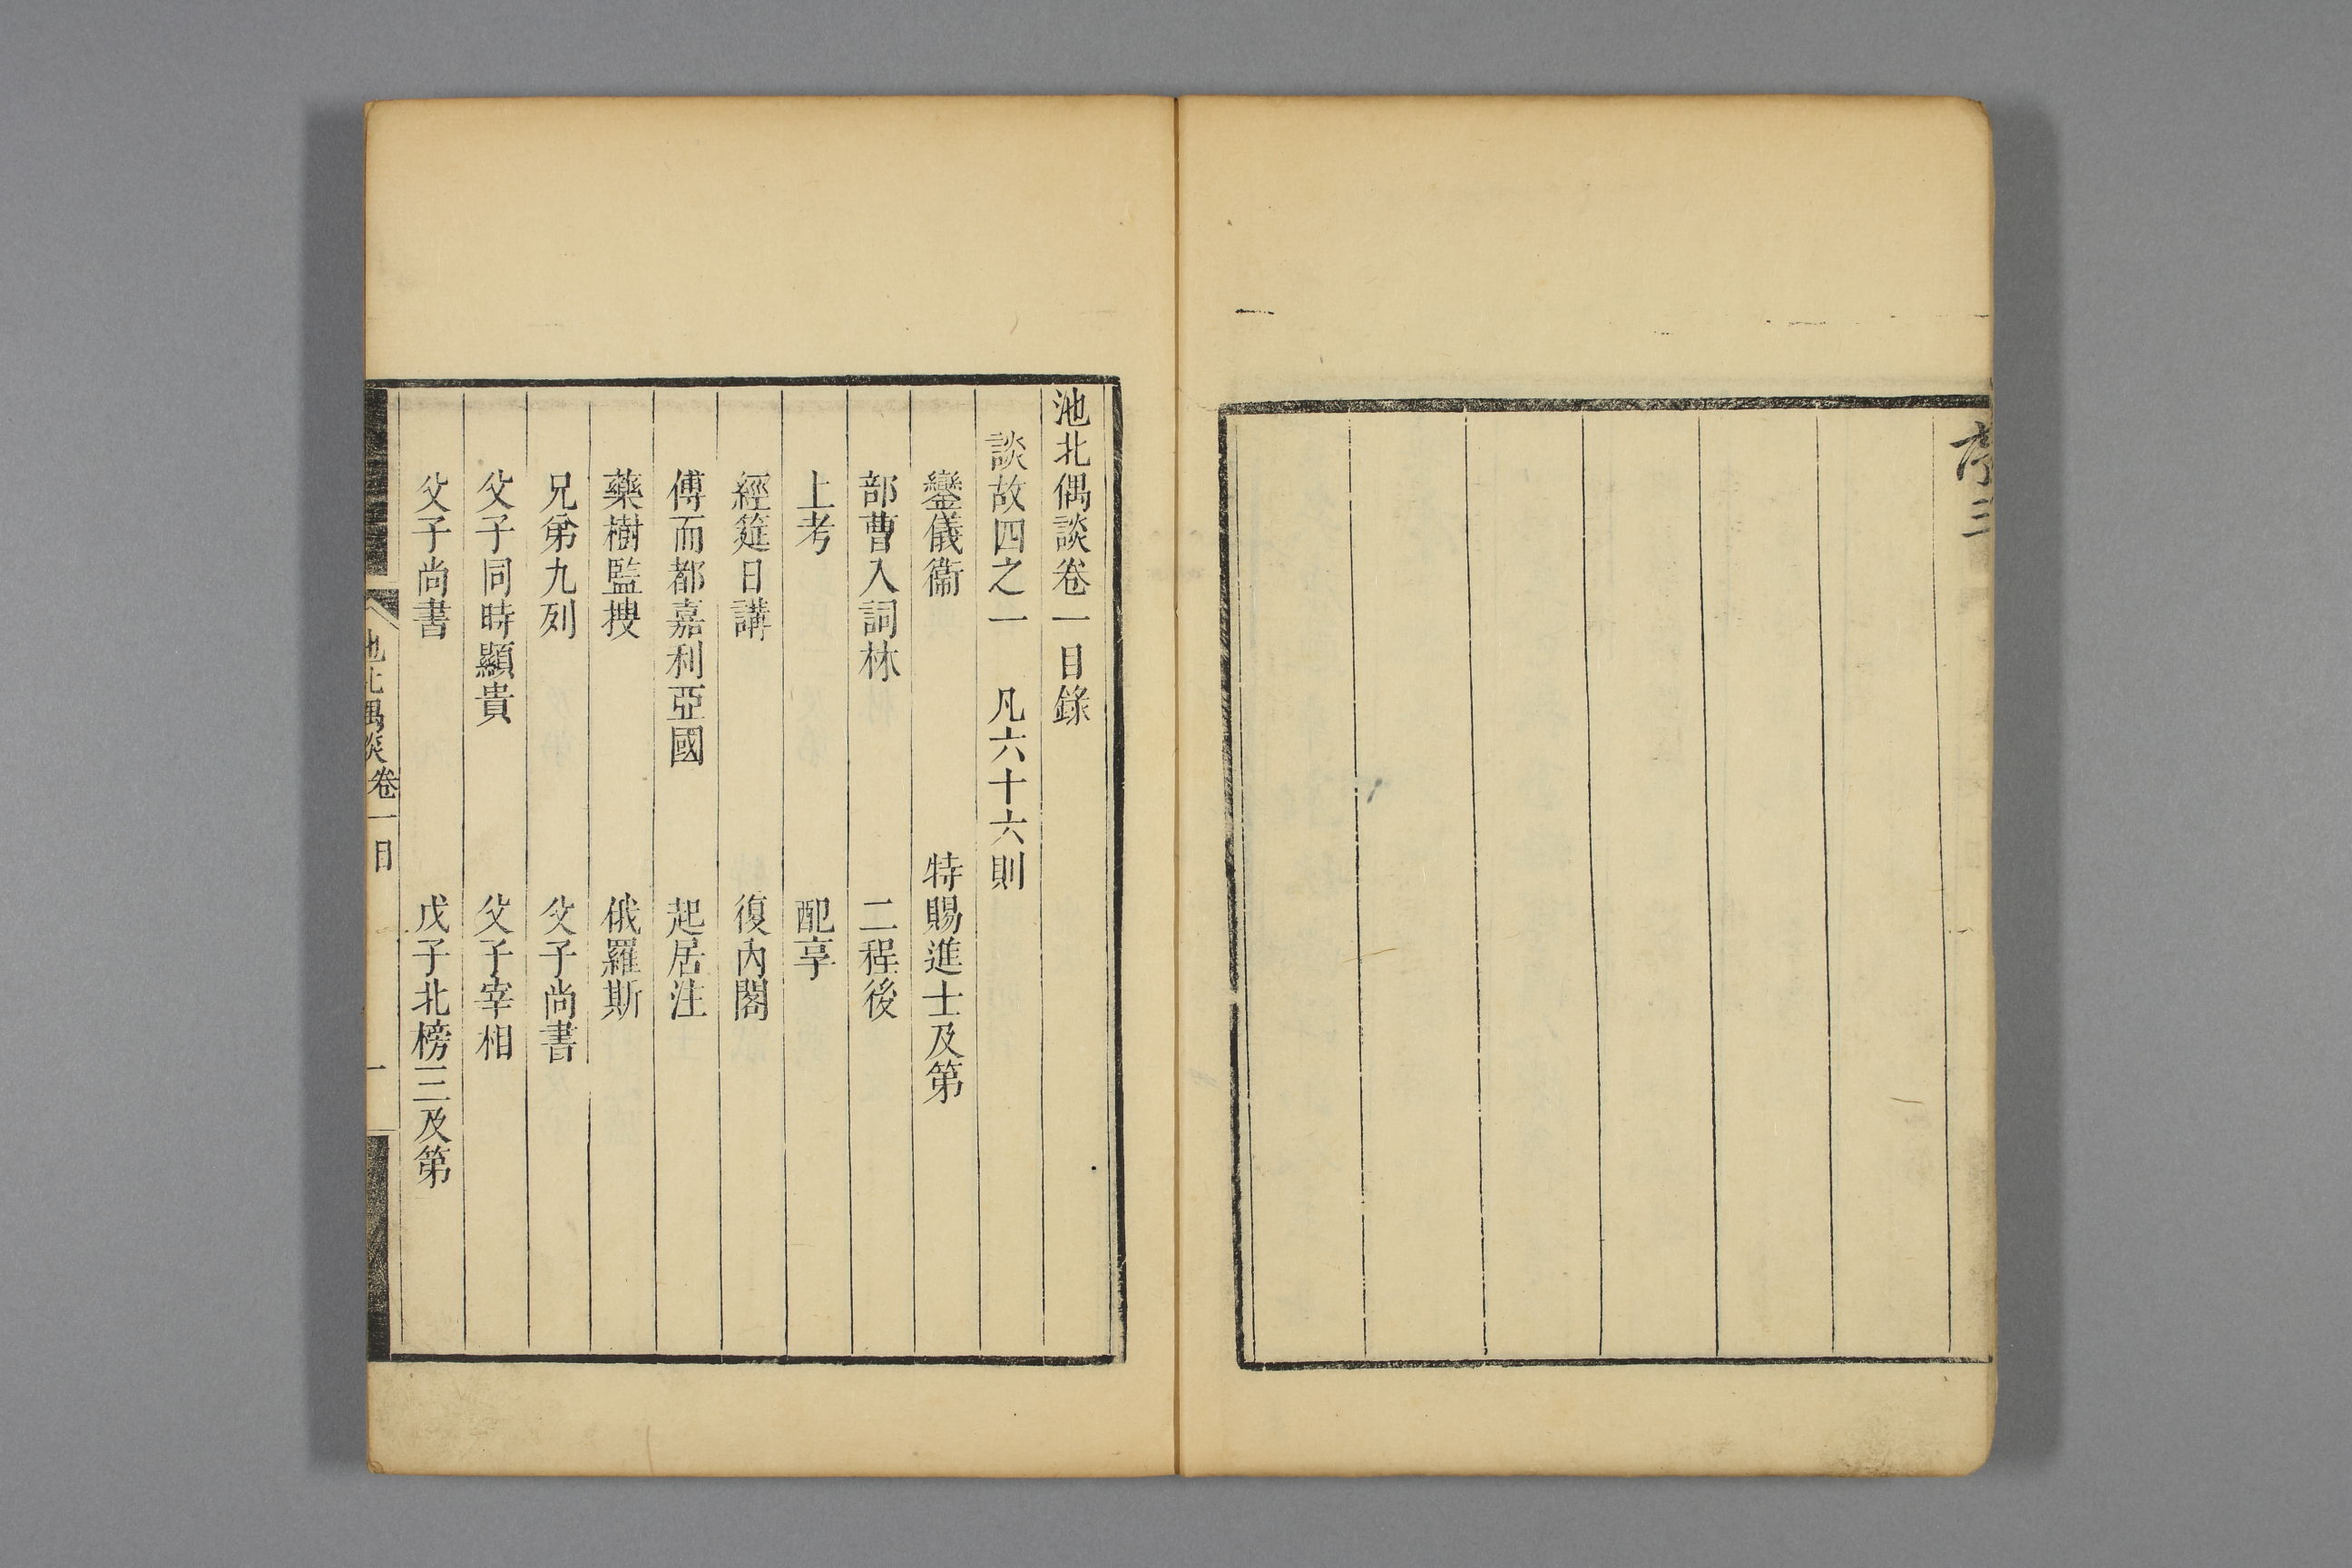 序三
池北偶談卷一目錄
談故四之一 凡六十六則
鑾儀衞 特賜進士及第
部曹入詞林 二程後
上考 配享
經筵日講 復內閣
傅而都嘉利亞國 起居注
藥樹監搜 俄羅斯
兄弟九列 父子尚書
父子同時顯貴 父子宰相
父子尚書 戊子北榜三及第
池北偶談卷一目 一